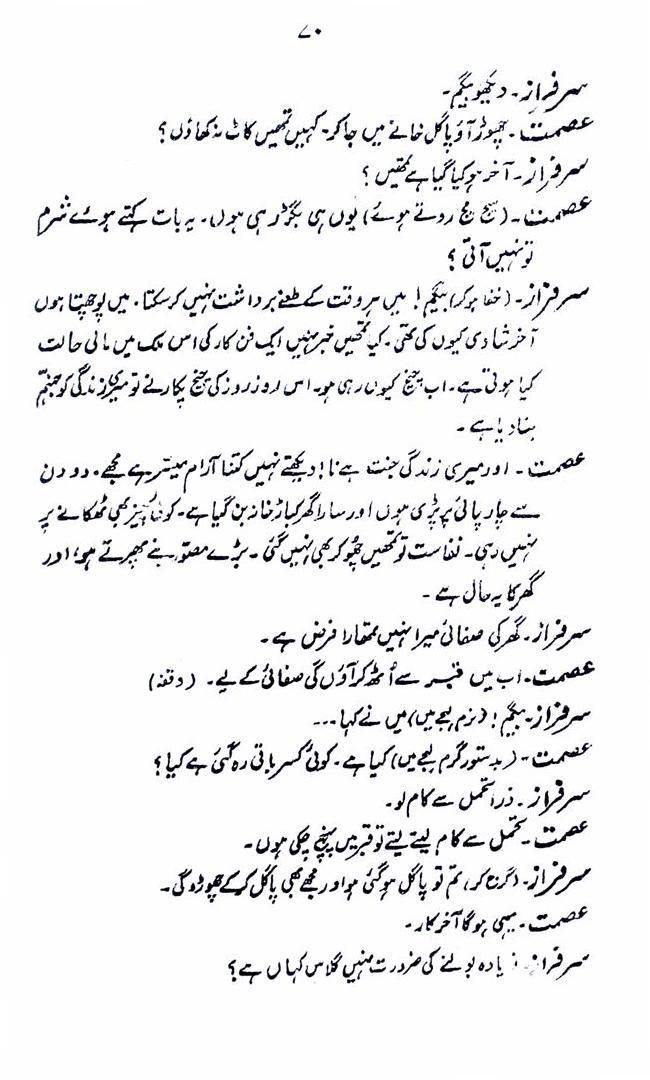 ۷۰
سرفراز۔ دیکھو بیگم۔
عصمت۔ چھوڑ آؤ پاگل خانے میں جا کر۔ کہیں تمھیں کاٹ نہ کھاؤں؟
سرفراز۔ آخر ہو کیا گیا ہے تمھیں؟
عصمت۔ (سچ مچ روتے ہوئے) یوں ہی بگڑ رہی ہوں۔ یہ بات کہتے ہوئے شرم
تو نہیں آتی؟
سرفراز۔ (خفا ہو کر) بیگم! میں ہر وقت کے طعنے برداشت نہیں کر سکتا۔ میں پوچھتا ہوں
آخر شادی کیوں کی تھی۔ کیا تمھیں خبر نہیں ایک فن کار کی اس ملک میں مالی حالت
کیا ہوتی ہے۔ اب چیخ کیوں رہی ہو۔ اس روز روز کی چیخ پکار نے تو میری زندگی کو جہنم
بنا دیا ہے۔
عصمت۔ اور میری زندگی جنت ہے نا! دیکھتے نہیں کتنا آرام میسّر ہے مجھے۔ دو دن
سے چارپائی پر پڑی ہوں اور سارا گھر کباڑ خانہ بن گیا ہے۔ کوئی چیز بھی ٹھکانے پر
نہیں رہی۔ نفاست تو تمھیں چھو کر بھی نہیں گئی۔ بڑے مصوّر بنے پھرتے ہو، اور
گھر کا یہ حال ہے۔
سرفراز۔ گھر کی صفائی میرا نہیں تمھارا فرض ہے۔
عصمت۔ اب میں قبر سے اُٹھ کر آؤں گی صفائی کے لیے۔ (وقفہ)
سرفراز۔ بیگم! (نرم لہجے میں) میں نے کہا...
عصمت۔ (بدستور گرم لہجے میں) کیا ہے۔ کوئی کسر باقی رہ گئی ہے کیا؟
سرفراز۔ ذرا تحمل سے کام لو۔
عصمت۔ تحمل سے کام لیتے لیتے تو قبر میں پہنچ چکی ہوں۔
سرفراز۔ (گرج کر) تم تو پاگل ہو گئی ہو اور مجھے بھی پاگل کر کے چھوڑو گی۔
عصمت۔ یہی ہو گا آخر کار۔
سرفراز۔ زیادہ بولنے کی ضرورت نہیں گلاس کہاں ہے؟